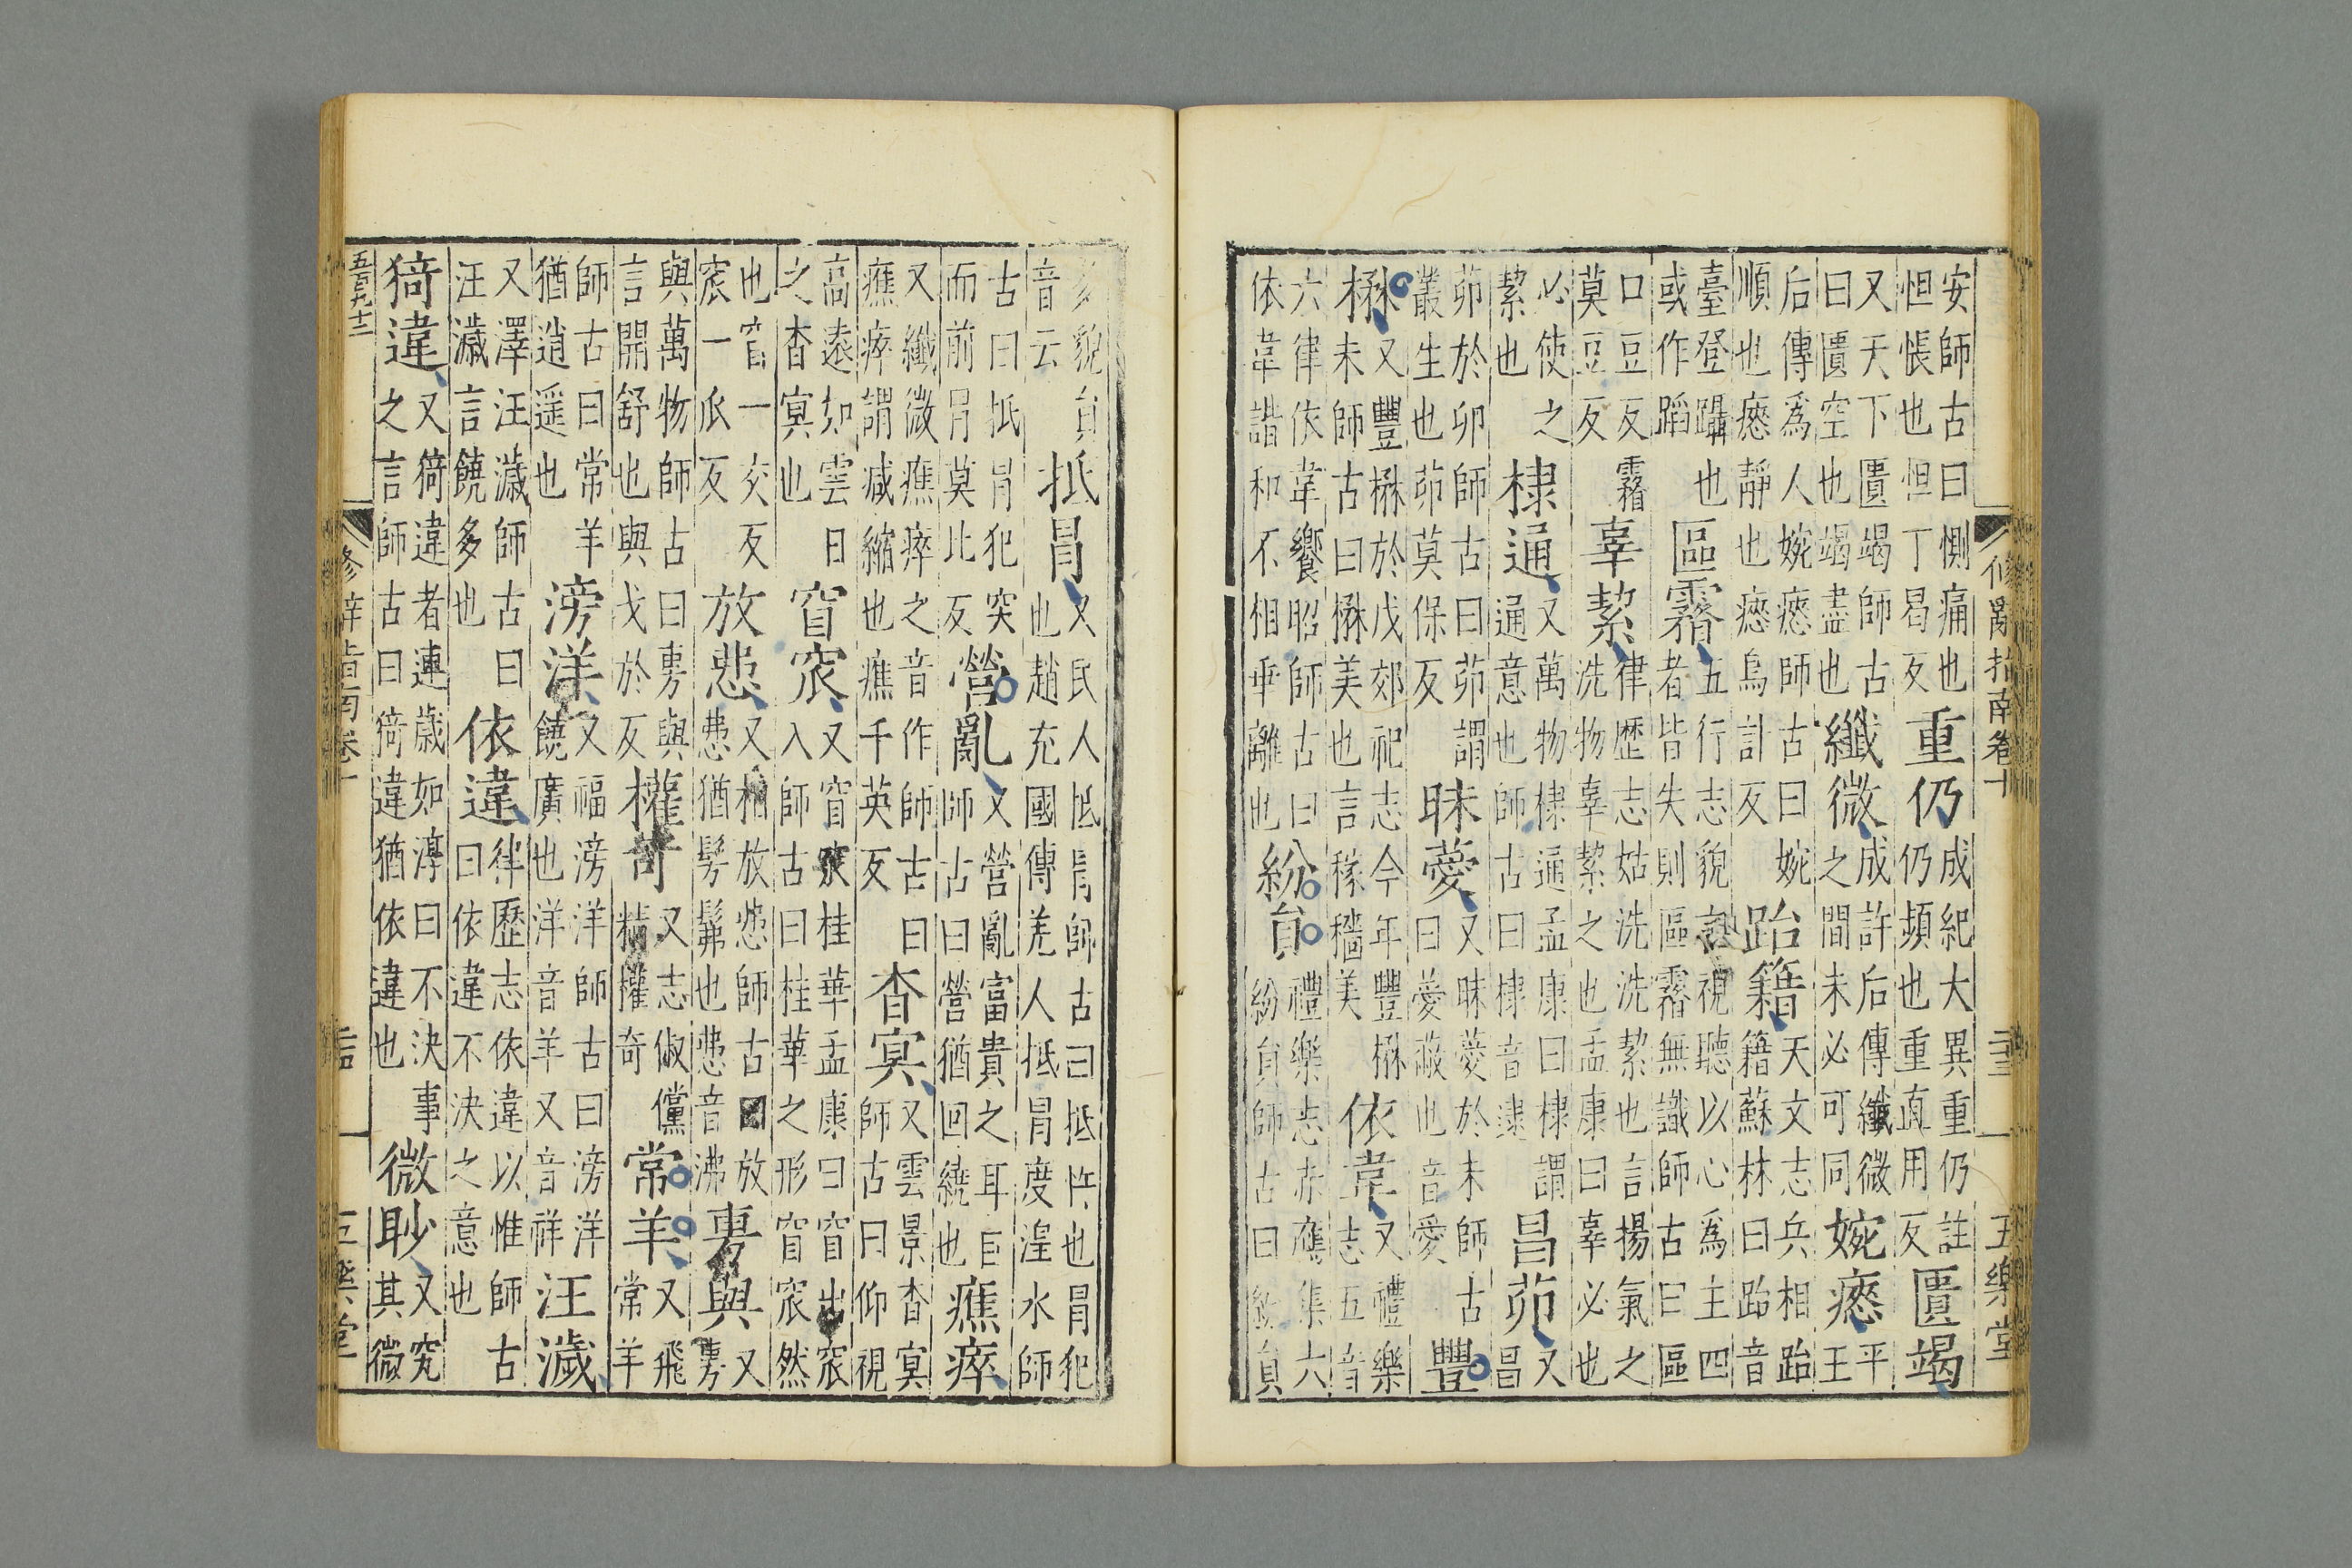 修辭指南卷十 二十三 五樂堂
安師古曰惻痛也怛悵也怛丁曷反重仍成紀大異重仍註仍頻也重直用反匱竭
又天下匱竭師古曰匱空也竭盡也纖微成許后傳纖微之間未必可同婉瘱平王
后傳為人婉瘱師古曰婉順也瘱靜也瘱烏計反跆籍天文志兵相跆籍蘇林曰跆音
臺登躡也或作蹈區霿五行志貌言視聽以心為主四者皆失則區霿無識師古曰區
口豆反霿莫豆反辜絜律歷志姑洗洗絜也言揚氣之洗物辜絜之也孟康曰辜必也
必使之絜也棣通又萬物棣通孟康曰棣謂通意也師古曰棣音逮昌茆又昌
茆於卯師古曰茆謂叢生也茆莫保反昧薆又昧薆於未師古曰薆蔽也音愛豐
楙又豐楙於戊郊祀志今年豐楙未師古曰楙美也言稼穡美依韋又禮樂志五音
六律依韋饗昭師古曰依韋諧和不相乖離也紛員禮樂志赤鴈集六紛員師古曰紛員
多貌員音云抵冐又民人抵冐師古曰抵忤也冐犯也趙充國傳羌人抵冐度湟水師
古曰抵冐犯突而前冐莫比反營亂又營亂富貴之耳目師古曰營猶回繞也癄瘁
又纖微癄瘁之音作師古曰癄瘁謂減縮也癄千英反杳冥又雲景杳冥師古曰仰視
高遠如雲日之杳冥也窅窊又窅窊桂華孟康曰窅出窊入師古曰桂華之形窅窊然
也窅一交反窊一瓜反放悲又相放悲師古曰放悲猶髣髴也悲音沸旉與又旉
與萬物師古曰旉與言開舒也與戈於反權奇又志俶儻精權奇常羊又飛常羊
師古曰常羊猶逍遥也滂洋又福滂洋師古曰滂洋饒廣也洋音羊又音祥汪濊
又澤汪濊師古曰汪濊言饒多也依違律歷志依違以惟師古曰依違不決之意也
猗違又猗違者連歲如淳曰不決事之言師古曰猗違猶依違也微眇又究其微
五百九十二
修辭指南卷十 二十四 五樂堂